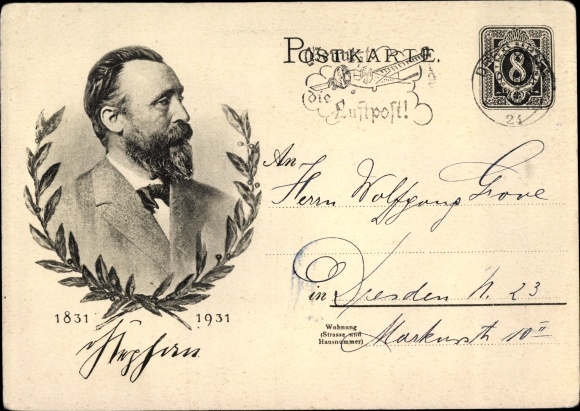 POSTKARTE.
8
die
Luftpost!
24
An
Herrn Wolfgang Grove
in Dresden N. 23
Wohnung
(Strasse und
Hausnummer)
Markusstr 10 II
1831 1931
Stephan